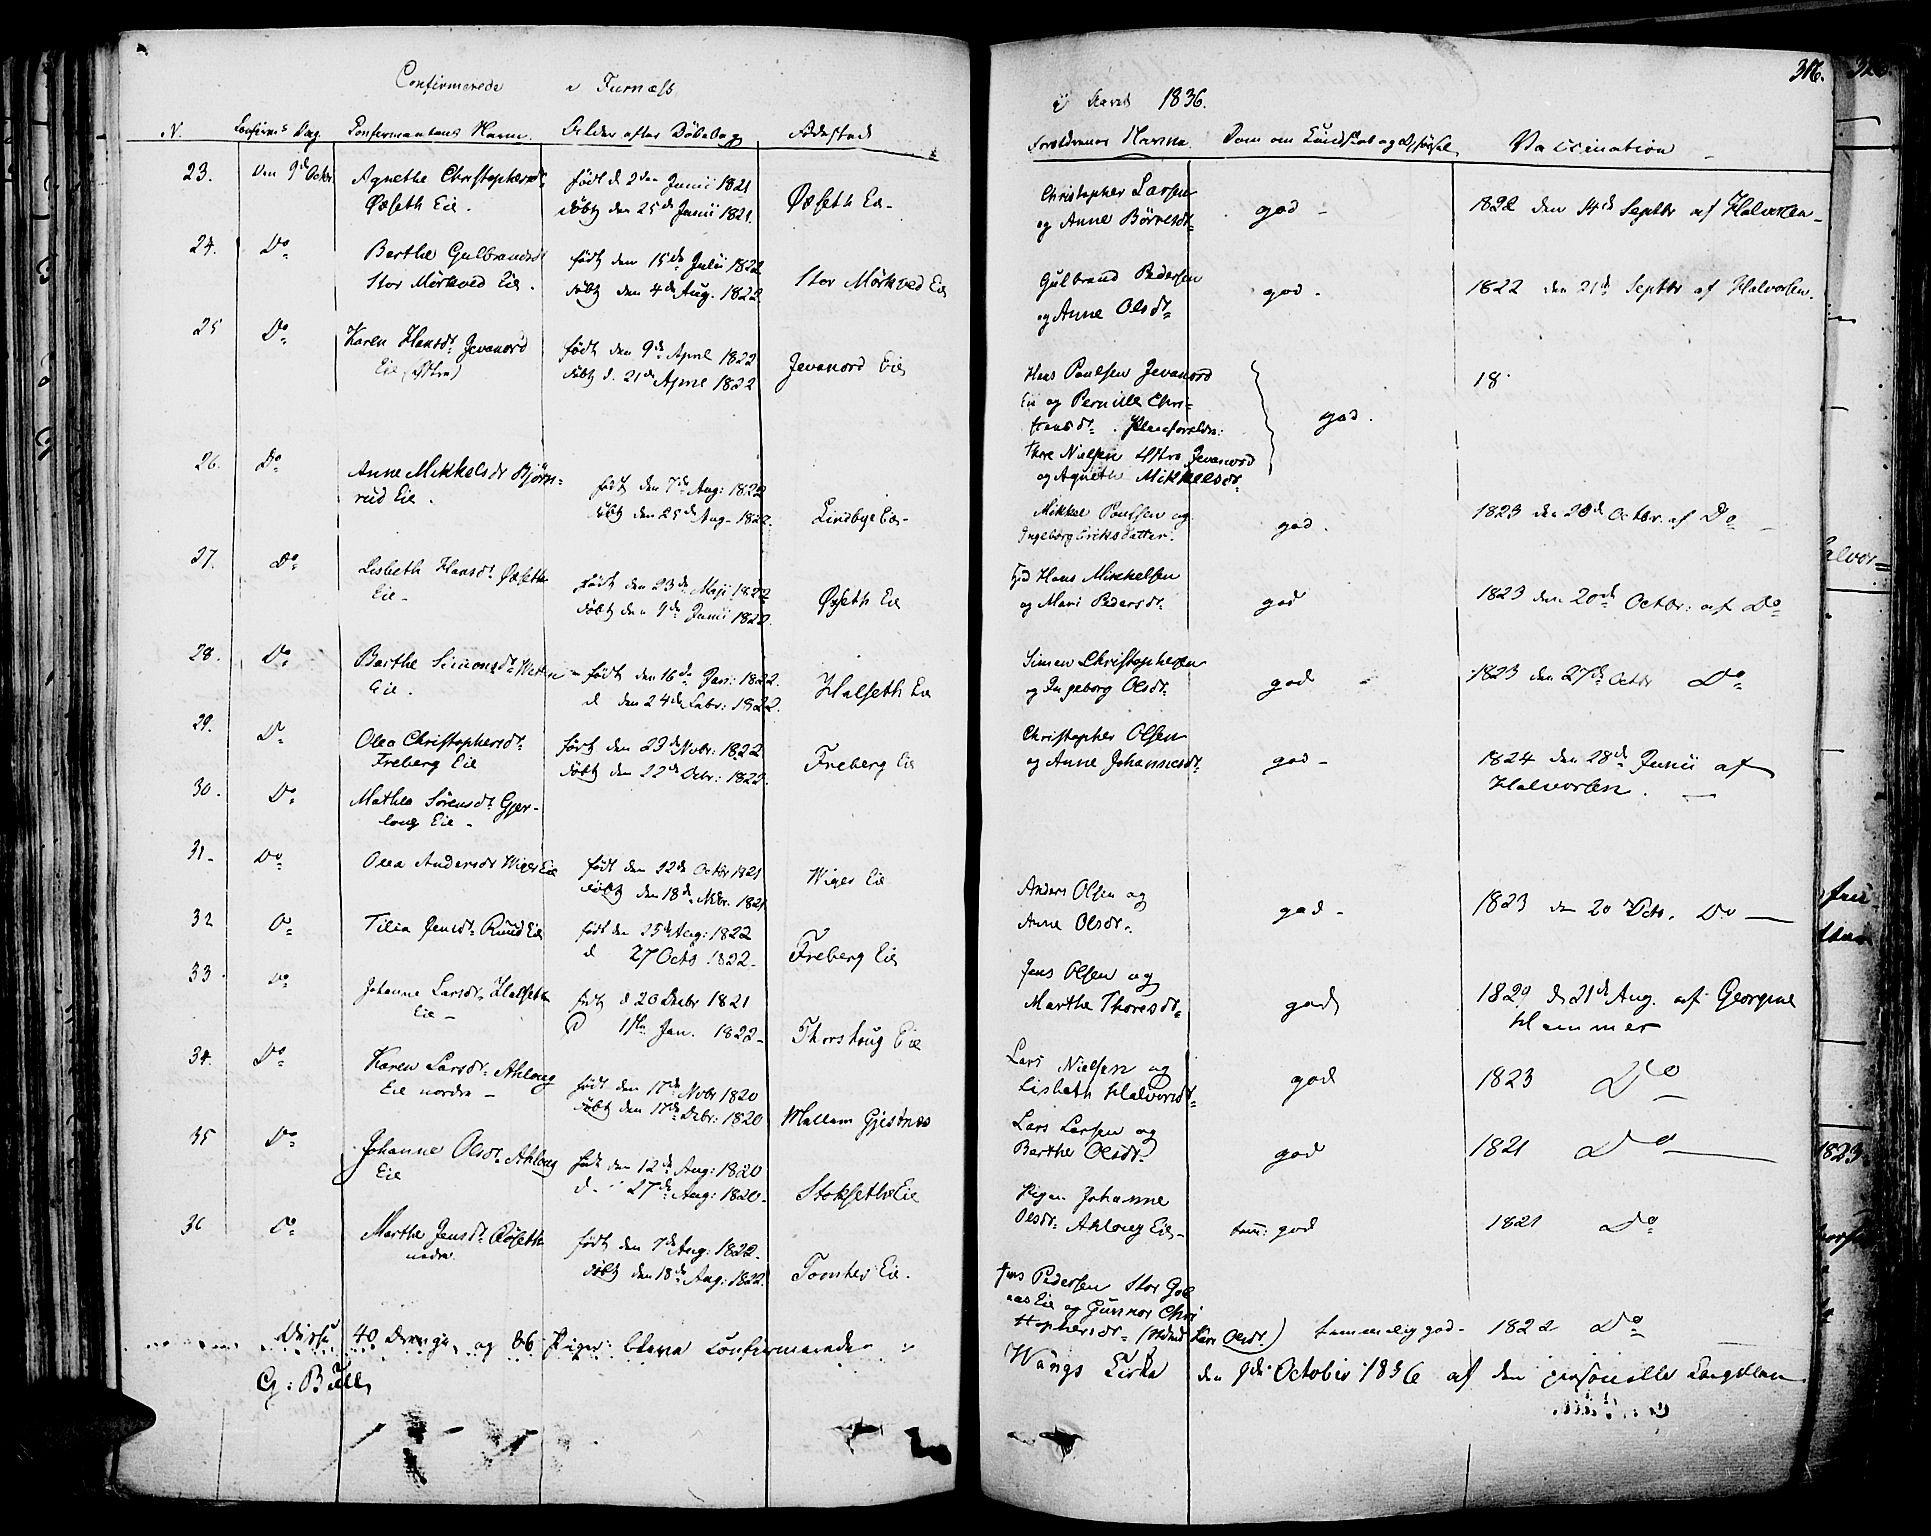 Confirmerede i Furnæss
i Aaret 1836.
316.
N. Confirm.s Dag. Confirmantens Navn. Alder efter Døbsdag Fødested
Forældrenes Navne. Dom om Kundskab og Opførsel Vaccination
23. den 9de Octbr Agnethe Christophersdt. født d 2den Junii 1821
Øæseth Eie. døbt den 25de Junii 1821. Øæseth Eie
Christopher Larsen
og Anne Børresdt. god 1822 den 14de Septbr af Halvorsen
24. Do Berthe Gulbrandsdt født den 15de Julii 1822
Stor Mørkved Eie. døbt den 4de Aug. 1822 Stor Mørkved Eie
Gulbrand Pedersen
og Anne Olsdt. god. 1822 den 21de Septbr af Halvorsen.
25 Do Karen Hansdt. Jevanord født den 9de April 1822
Eie døbt d. 21de April 1822 Jevanord Eie
Hans Poulsen Jevanord
Eie og Pernille Chri-
stiansdt. Pleieforældre: god. 18
Thore Nielsen Jevanord
og Agnethe Mikkelsdt.
26. Do Anne Mikkelsdt Bjørn-
rud Eie. født den 7de Aug: 1822
døbt den 25de Aug. 1822. Lindbye Eie
Mikkel Poulsen og
Ingeborg Eriksdatter. god. 1823 den 20de Octbr. af Do
27. Do Lisbeth Hansdt. Øæseth
Eie født den 23de Maji 1822
døbt den 9de Junii 1822. Øæseth Eie
Hans Mikkelsen
og Mari Pedersdt. god 1823 den 20de Octbr: af Do
28. Do Berthe Simonsdt.
Eie. født den 16de Jan: 1822.
d den 24de Febr: 1822. Halseth Eie
Simen Christophersen
og Ingeborg Olsdt. god 1823 den 27de Octbr Do
29. Do Olea Christophersdt.
Freberg Eie født den 23de Novbr: 1822
døbt den 22de Decbr: 1822. Freberg Eie
Christopher Olsen
og Anne Johannesdt. god 1824 den 28de Junii af
Halvorsen.
30. Do Mathea Sørensdt. Gjer-
loug Eie
31. Do Olea Andersdt Wiger Eie født den 22de Octbr 1821
døbt den 18de Novbr. 1821 Wiger Eie
Anders Olsen og
Anne Olsdt. god 1823 den 20 Octo. Do
32 Do Tilia Jensdt. Ruud Eie født den 25de Aug: 1822
d 27 Octo. 1822. Freberg Eie
Jens Olsen og
Marthe Thoresdt. god 1829 d 21de Aug. af Georgine
Hammer
33. Do Johanne Larsdt. Halseth
Eie født d 20 Decbr 1821
D 1ste Jan. 1822 Thorshoug Eie
Lars Nielsen og
Lisbeth Halvorsdt. god 1823 Do
34. Do Karen Larsdt. Ahloug
Eie nordre født den 17de Novbr 1820
døbt den 17de Decbr: 1820 Mellem Gjesønæs
Lars Larsen og
Berthe Olsdt. god 1821 Do
35 Do Johanne Olsdt. Ahloug
Eie født den 12de Aug: 1820
d. 27de Aug: 1820. Stokseth Eie
Pigen Johanne
Olsdt. Ahloug Eie god 1821 Do
36 Do Marthe Jensdt. Røseth
nedre født den 7de Aug: 1822.
døbt den 18de Aug: 1822. Tomter Eie.
Jens Pedersen Stor
Eie og Gunnor Chri
stophersdt. temmelig god 1822 Do
Disse 40 Drenge og 36 Piger bleve confirmerede i
Wangs Kirke den 9de October 1836 af den personelle Capellan
G: Bull